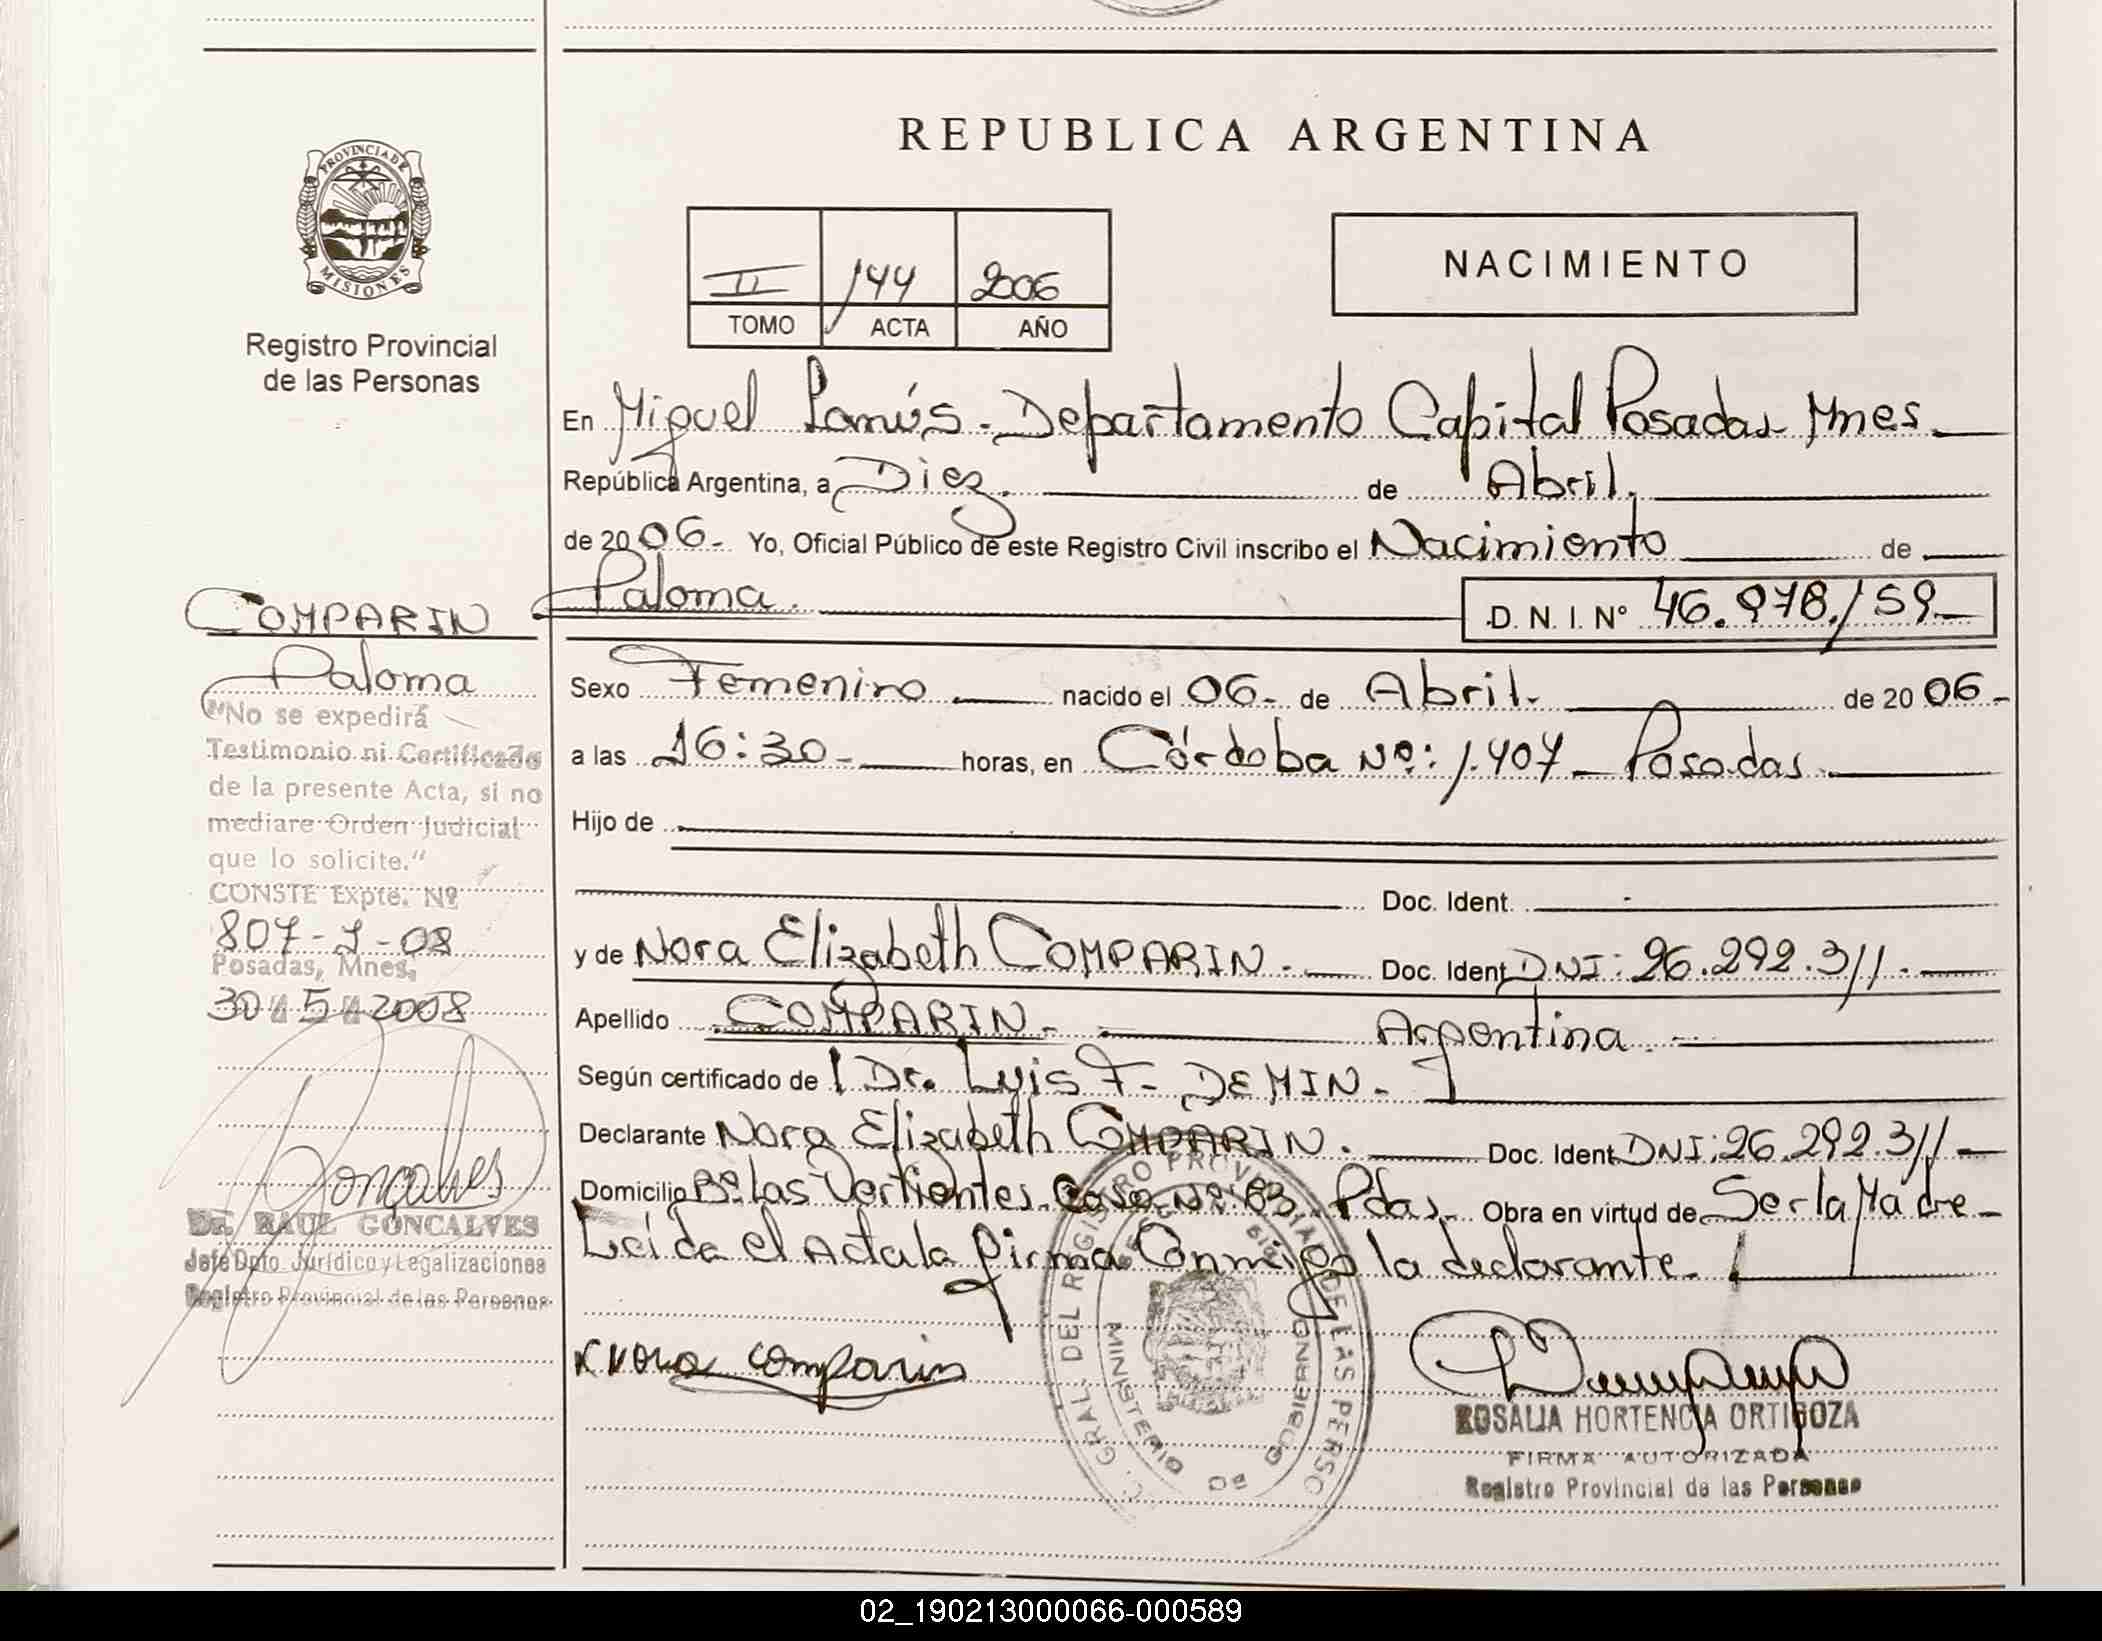 REPUBLICA ARGENTINA
PROVINCIA DE
MISIONES
Registro Provincial
de las Personas
II 144 2006
TOMO ACTA AÑO
NACIMIENTO
En Miguel Lanús - Departamento Capital Posadas Mnes
República Argentina, a Diez. de Abril.
de 2006- Yo, Oficial Público de este Registro Civil inscribo el Nacimiento de
Paloma. D. N. I. N° 46.978.159
Sexo Femenino nacido el 06- de Abril. de 2006-
a las 16:30- horas, en Córdoba Nº: 1.407 - Posadas.
Hijo de
Doc. Ident.
y de Nora Elizabeth COMPARIN. Doc. Ident DNI: 26.292.311.
Apellido COMPARIN. Argentina.
Según certificado de Dr. Luis F. DEMIN.
Declarante Nora Elizabeth COMPARIN. Doc. Ident DNI: 26.292.311
Domicilio Bº Las Vertientes Casa Nº 63 Pdas. Obra en virtud de Ser la Madre
Leída el Acta la firma Conmigo la declarante.
Nora Comparin
ROSALIA HORTENCIA ORTIGOZA
FIRMA AUTORIZADA
Registro Provincial de las Personas
COMPARIN
Paloma
"No se expedirá
Testimonio ni Certificado
de la presente Acta, si no
mediare Orden Judicial
que lo solicite."
CONSTE Expte. Nº
807-J-08
Posadas, Mnes,
30 5 2008
Gonçalves
Dr. RAUL GONCALVES
Jefe Dpto. Jurídico y Legalizaciones
Registro Provincial de las Personas
GRAL. DEL REGISTRO PROVINCIAL DE LAS PERSO
MINISTERIO DE GOBIERNO
02_190213000066-000589